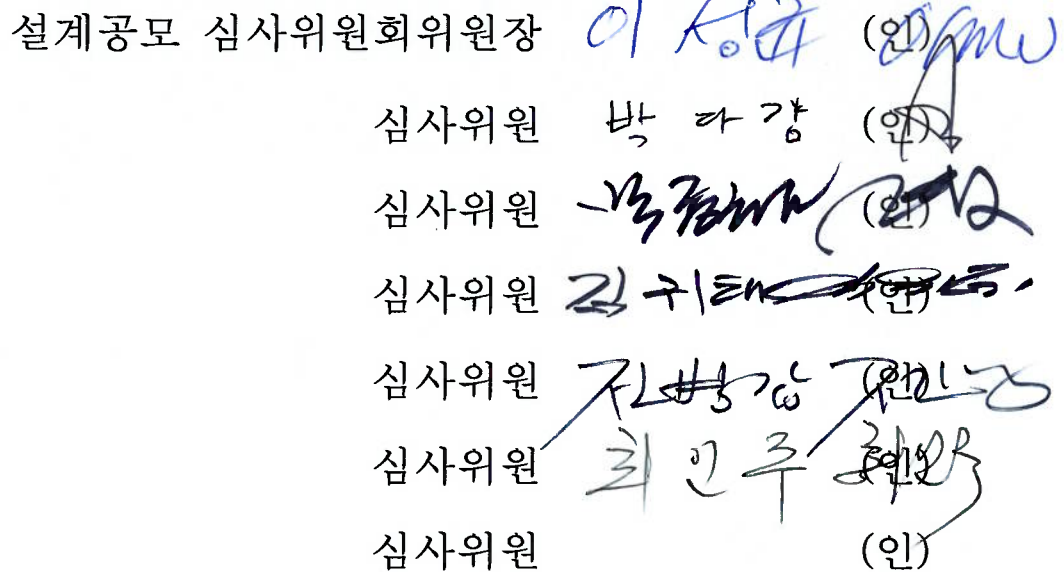 설계공모 심사위원회위원장 이 (인)
심사위원 박다강 (인)
심사위원 (인)
심사위원 김귀태 (인)
심사위원 (인)
심사위원 최인주 (인)
심사위원 (인)